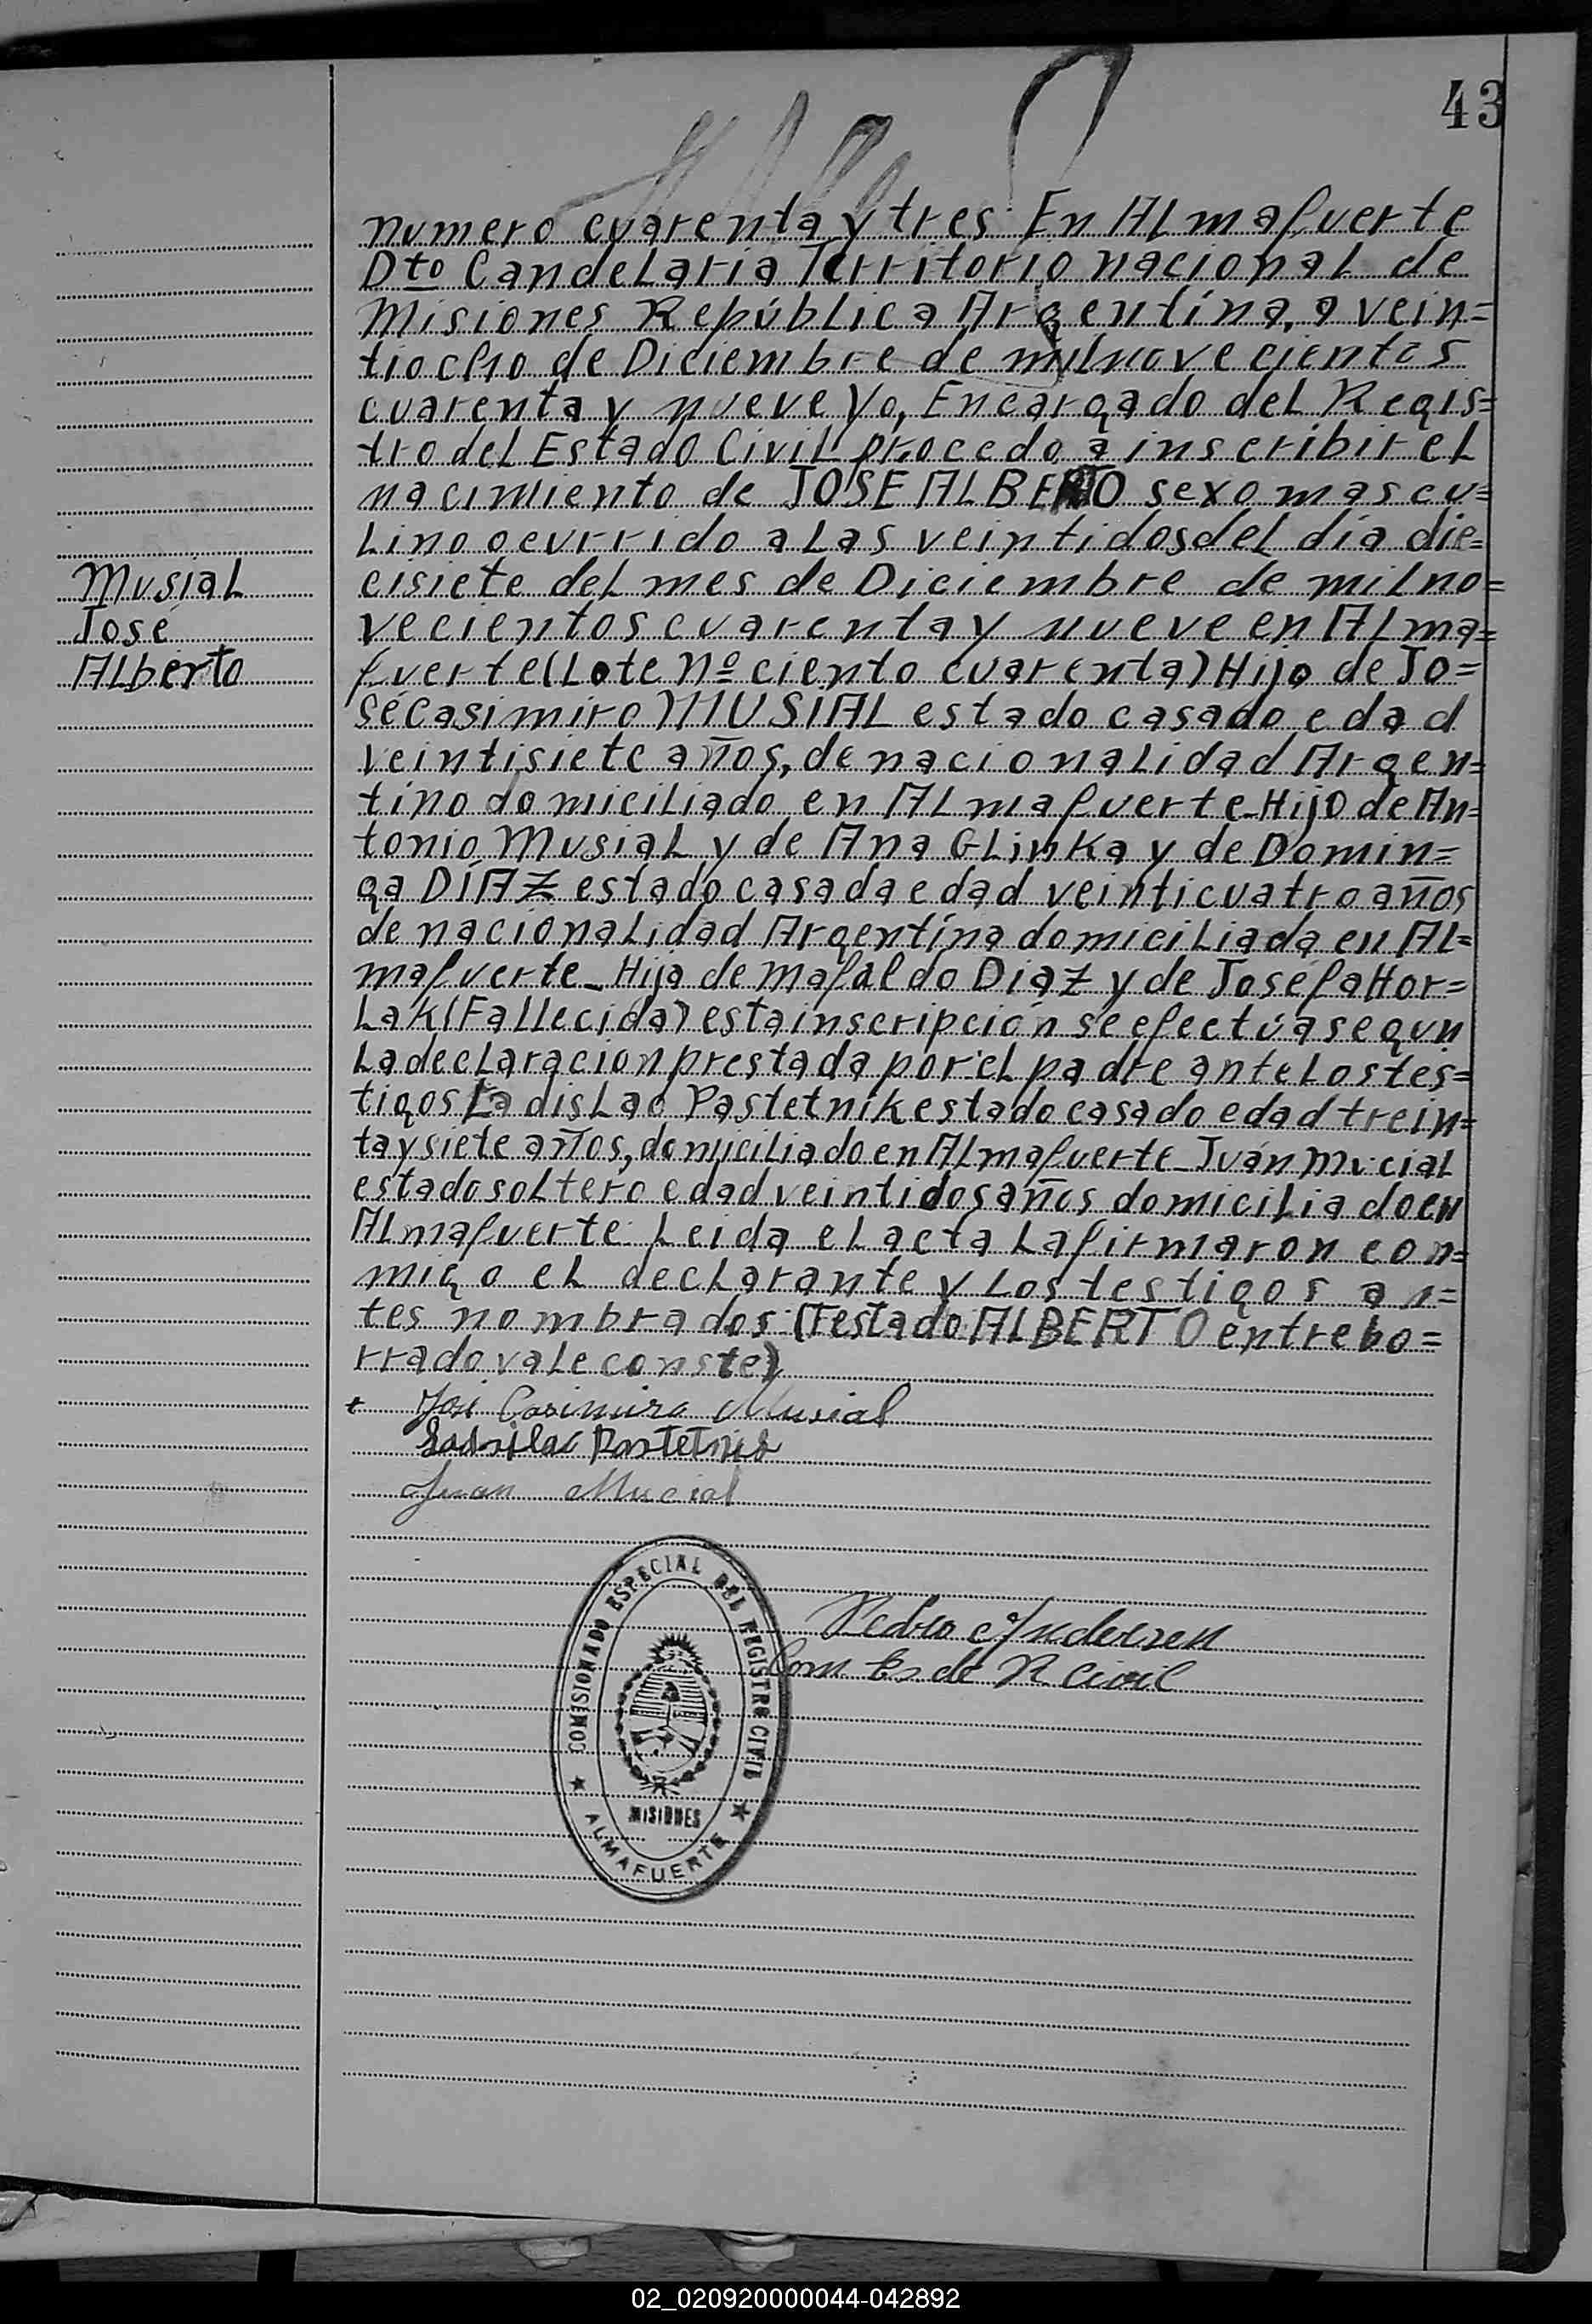 43
numero cuarenta y tres En ALmafuerte
Dto CandeLaria Territorio nacional de
Misiones República Argentina, a vein=
tiocho de Diciembre de milnovecientos
cuarenta y nueve Yo, Encargado del Regis=
tro del Estado Civil procedo a inscribir el
nacimiento de JOSE ALBERTO sexo mascu=
Lino ocurrido a Las veintidos del día die=
cisiete del mes de Diciembre de milno=
Musial
vecientos cuarenta y nueve en ALma=
José
fuerte (Lote nº ciento cuarenta) Hijo de Jo=
ALberto
sé Casimiro MUSIAL estado casado edad
veintisiete años, de nacionalidad Argen=
tino domiciliado en ALmafuerte_Hijo de An=
tonio Musial y de Ana GLinka y de Domin=
ga DÍAZ estado casada edad veinticuatro años
de nacionalidad Argentina domiciliada en AL=
mafuerte_Hija de Mafaldo Díaz y de Josefa Hor=
Lak (Fallecida) esta inscripción se efectúa segun
La declaracion prestada por el padre ante Los tes=
tigos Ladislao Pastetnik estado casado edad trein=
ta y siete años, domiciliado en ALmafuerte_Juán Mucial
estado soltero edad veintidos años domiciliado en
ALmafuerte Leida el acta La firmaron con=
migo el declarante y Los testigos an=
tes nombrados (Testado ALBERTO entrebo=
rrado vale conste)
José Casimiro Musial
Ladislao Pastetnik
Juan Mucial
Pedro Andersen
Com Es de R Civil
COMISIONADO ESPECIAL DEL REGISTRO CIVIL
MISIONES
ALMAFUERTE
02_020920000044-042892